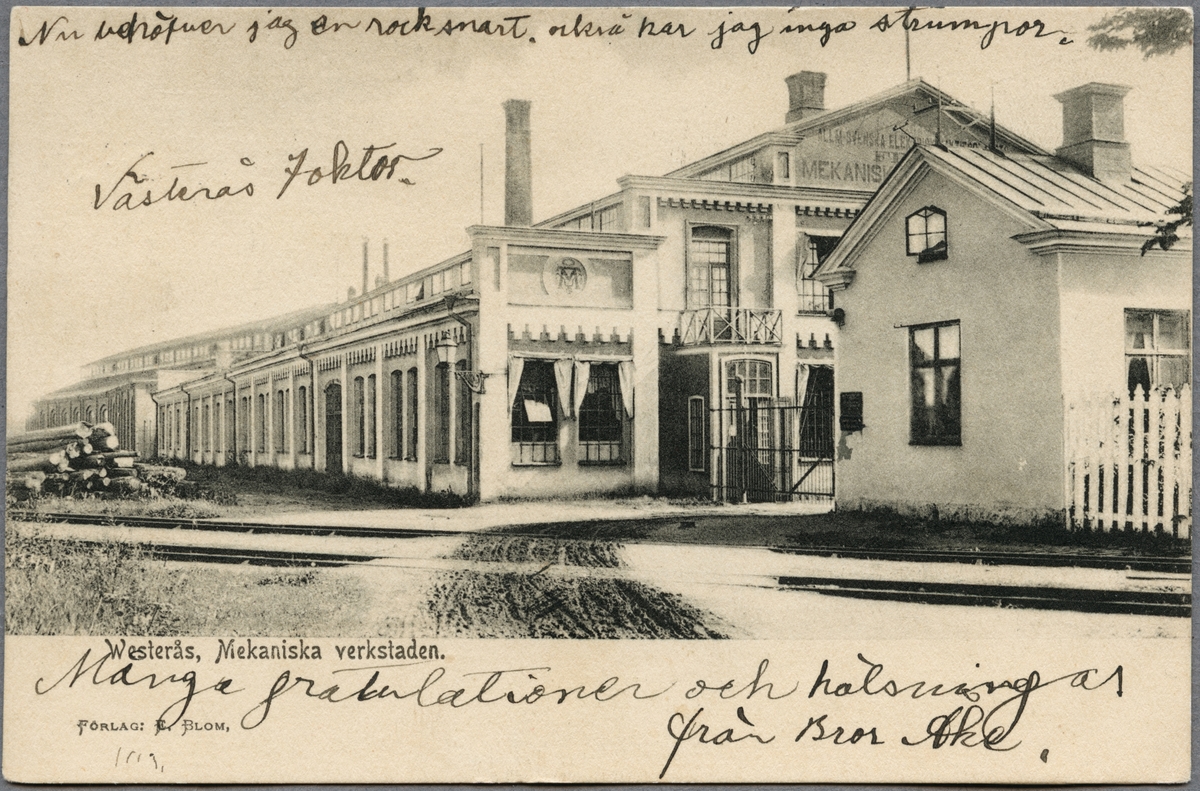 Nu behöfver jag en rock snart. också har jag inga strumpor.
Västerås
ALLM. SVENSKA ELEK
MEKANISK
Westerås, Mekaniska verkstaden.
Många gratulationer och hälsningar
från Bror Åke.
FÖRLAG: E. BLOM,